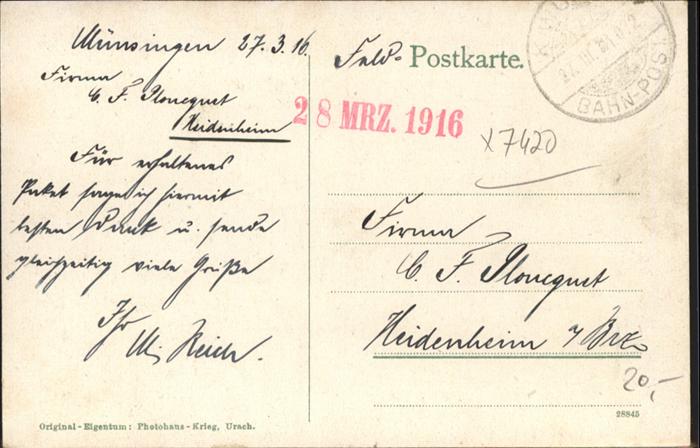 Münsingen 27.3.16.
Firma
C. F. Ploucquet
Heidenheim
Für erhaltenes
Paket sage ich hiermit
besten Dank u. sende
gleichzeitig viele Grüße
Ihr
Reich.
Original-Eigentum: Photohaus-Krieg, Urach.
Feld- Postkarte.
BAHN-POST
28 MRZ. 1916
x7420
Firma
C. F. Ploucquet
Heidenheim a/Brz.
20,-
28845